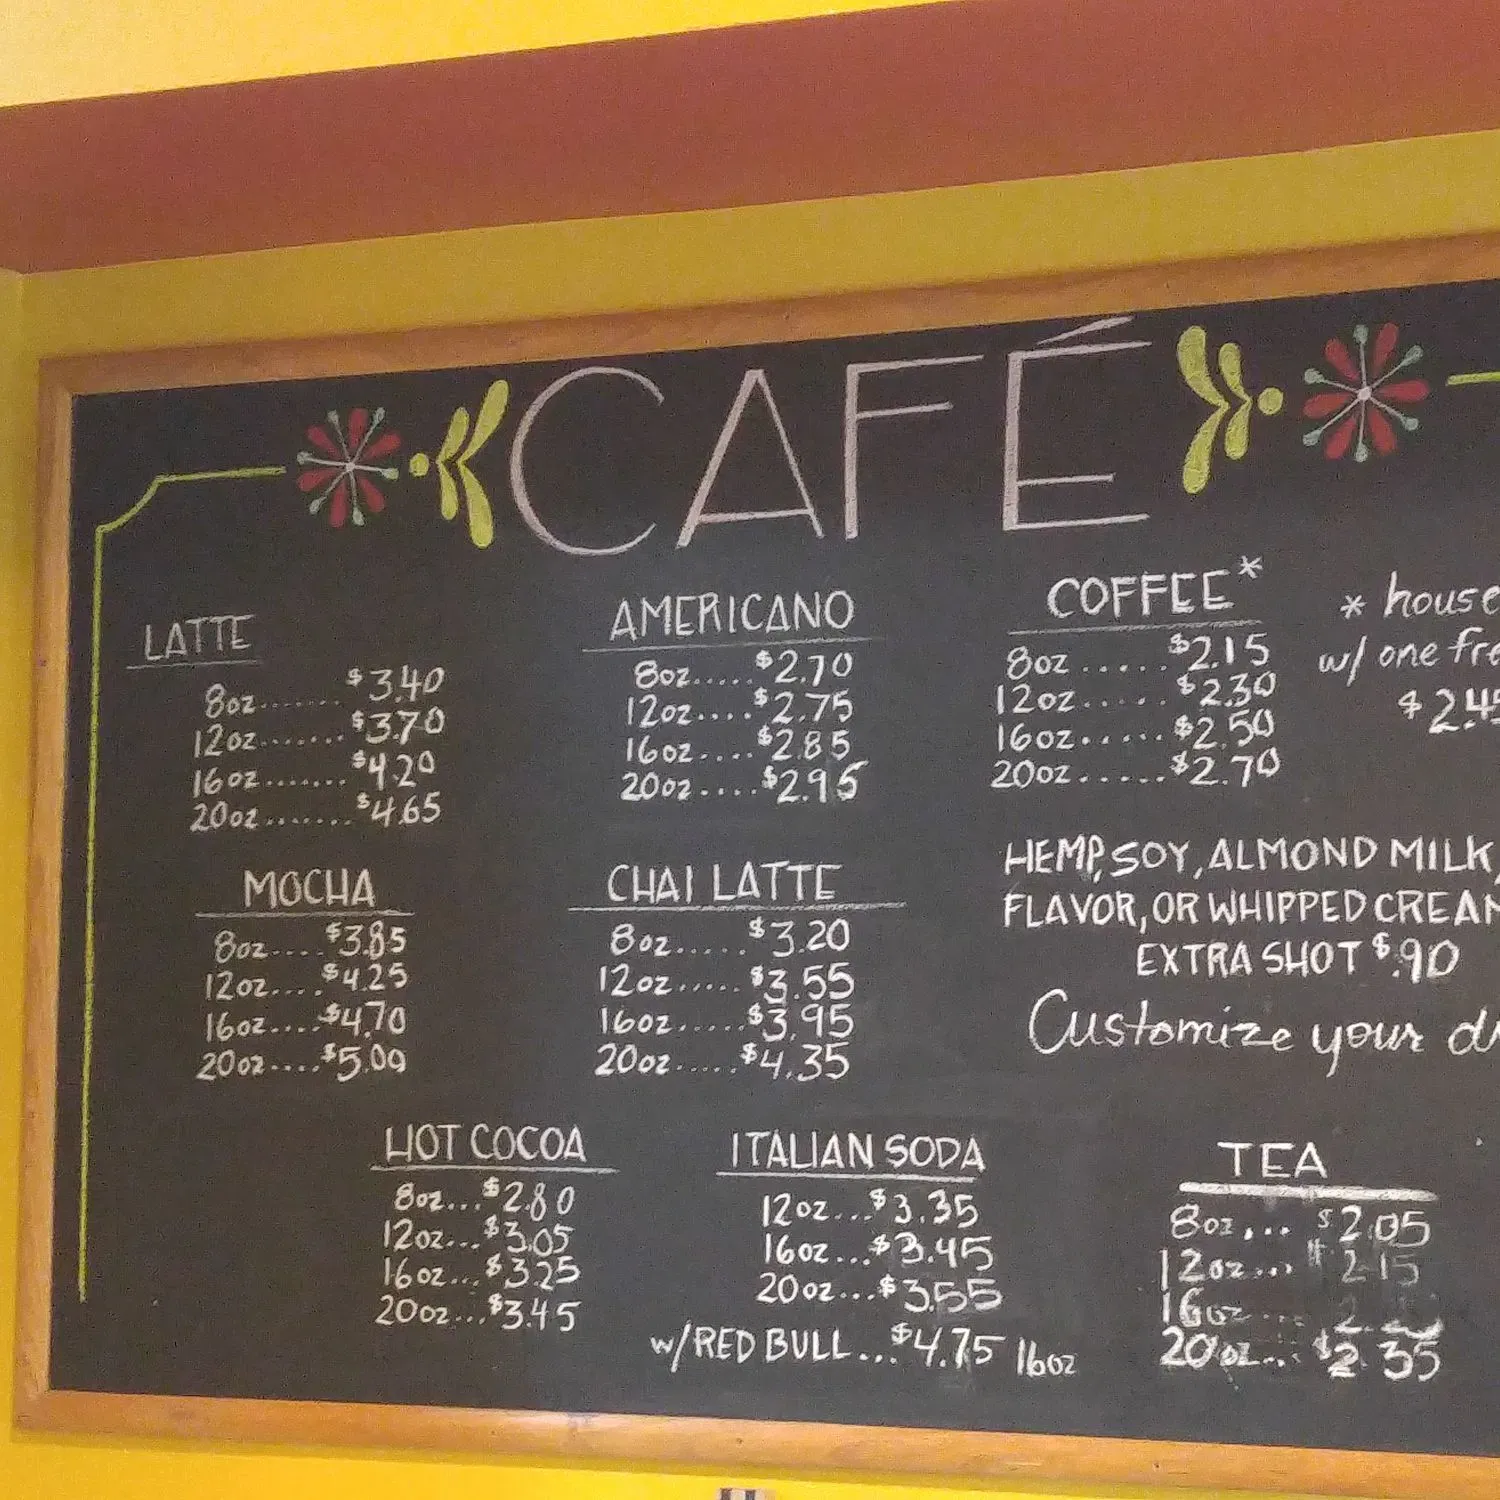 CAFÉ
LATTE
8oz....... $3.40
12oz....... $3.70
16oz....... $4.20
20oz....... $4.65
AMERICANO
8oz..... $2.70
12oz.... $2.75
16oz.... $2.85
20oz.... $2.95
COFFEE*
8oz ..... $2.15
12oz..... $2.30
16oz..... $2.50
20oz..... $2.70
* house
w/ one
$2.45
MOCHA
8oz.... $3.85
12oz.... $4.25
16oz.... $4.70
20oz.... $5.00
CHAI LATTE
8oz..... $3.20
12oz..... $3.55
16oz..... $3.95
20oz..... $4.35
HEMP, SOY, ALMOND MILK,
FLAVOR, OR WHIPPED CREAM
EXTRA SHOT $.90
Customize your
HOT COCOA
8oz... $2.80
12oz... $3.05
16oz... $3.25
20oz... $3.45
ITALIAN SODA
12oz... $3.35
16oz... $3.45
20oz... $3.55
w/RED BULL... $4.75 16oz
TEA
8oz... $2.05
12oz... $2.15
16oz
20oz... $2.35